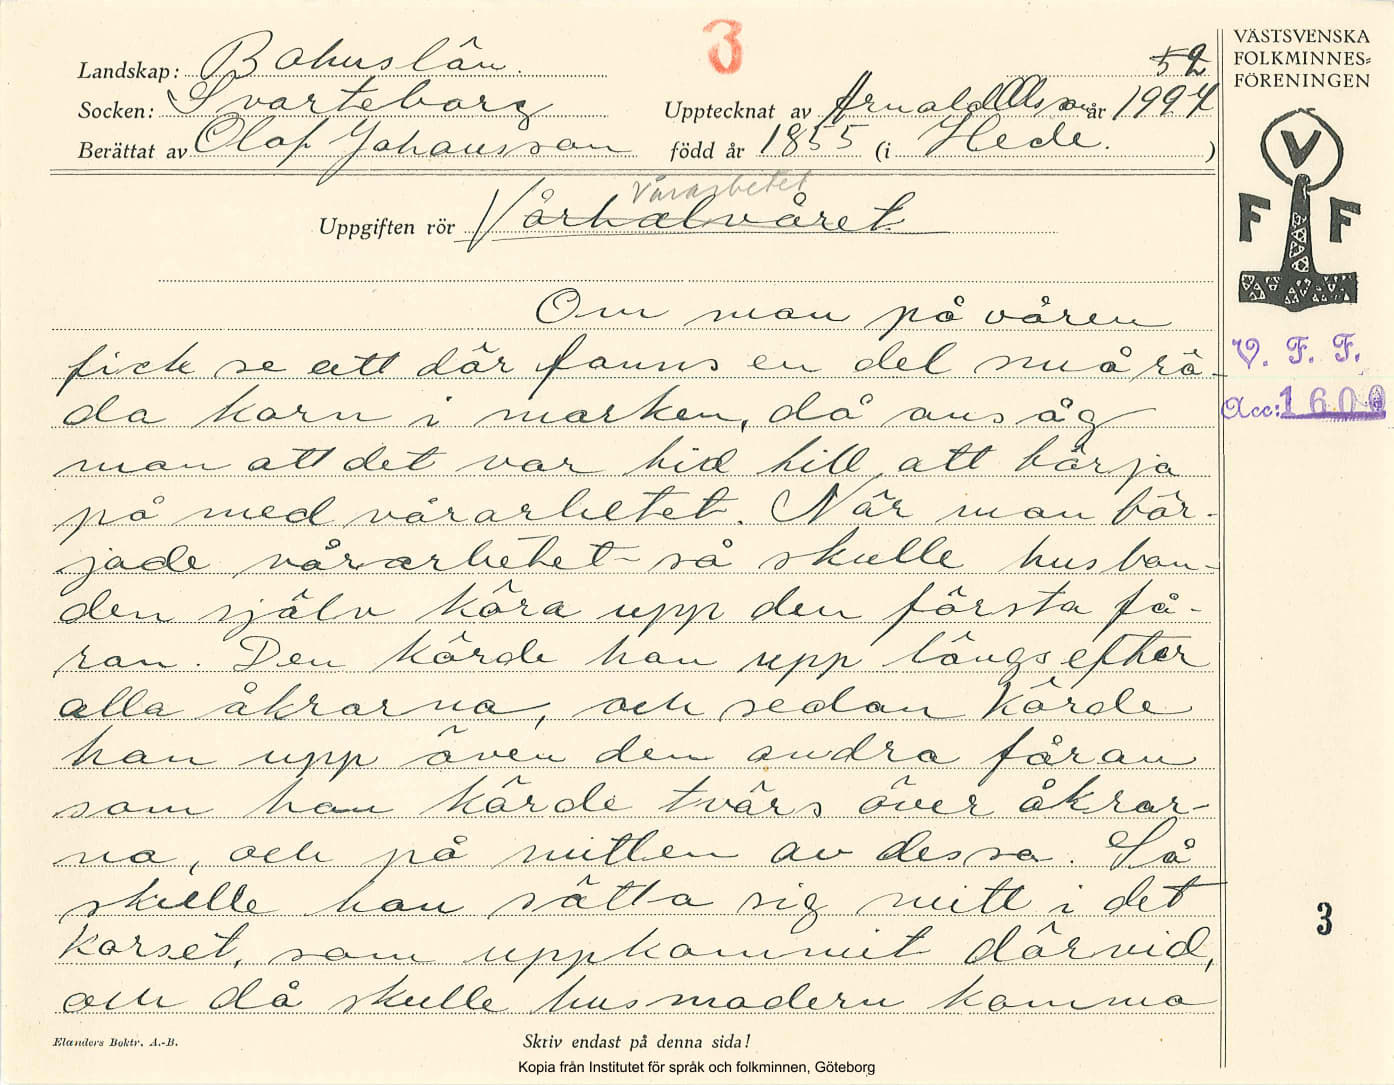 3
52
VÄSTSVENSKA
FOLKMINNES-
FÖRENINGEN
Landskap: Bohuslän.
Socken: Svarteborg Upptecknat av Arnold Olsson år 1927
Berättat av Olof Johansson född år 1855 (i Hede. )
V
F F
Vårarbetet
Uppgiften rör Vårhalvåret
Om man på våren
fick se att där fanns en del små rö-
da korn i marken, då ansåg
man att det var tid till att börja
på med vårarbetet. När man bör-
jade vårarbetet så skulle husbon-
den själv köra upp den första få-
ran. Den körde han upp längs efter
alla åkrarna, och sedan körde
han upp även den andra fåran
som han körde tvärs över åkrar-
na, och på mitten av dessa. Så
skulle han sätta sig mitt i det
korset, som uppkommit därvid,
och då skulle husmodern komma
V. F. F.
Acc: 1600
3
Elanders Boktr. A.-B.
Skriv endast på denna sida!
Kopia från Institutet för språk och folkminnen, Göteborg